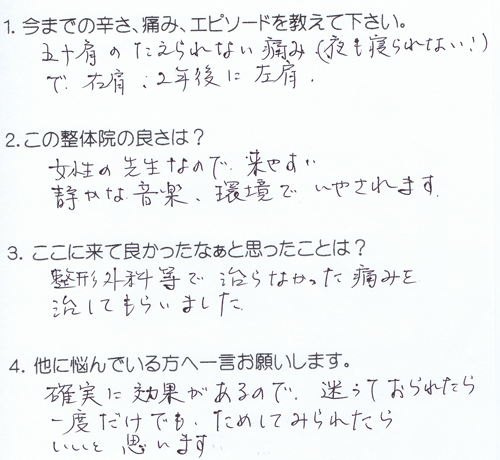 1. 今までの辛さ、痛み、エピソードを教えて下さい。
五十肩のたえられない痛み(夜も寝られない!)
で、右肩、2年後に左肩.
2.この整体院の良さは?
女性の先生なので、来やすい
静かな音楽、環境でいやされます.
3. ここに来て良かったなぁと思ったことは?
整形外科等で治らなかった痛みを
治してもらいました.
4. 他に悩んでいる方へ一言お願いします。
確実に効果があるので、迷っておられたら
一度だけでも、ためしてみられたら
いいと思います